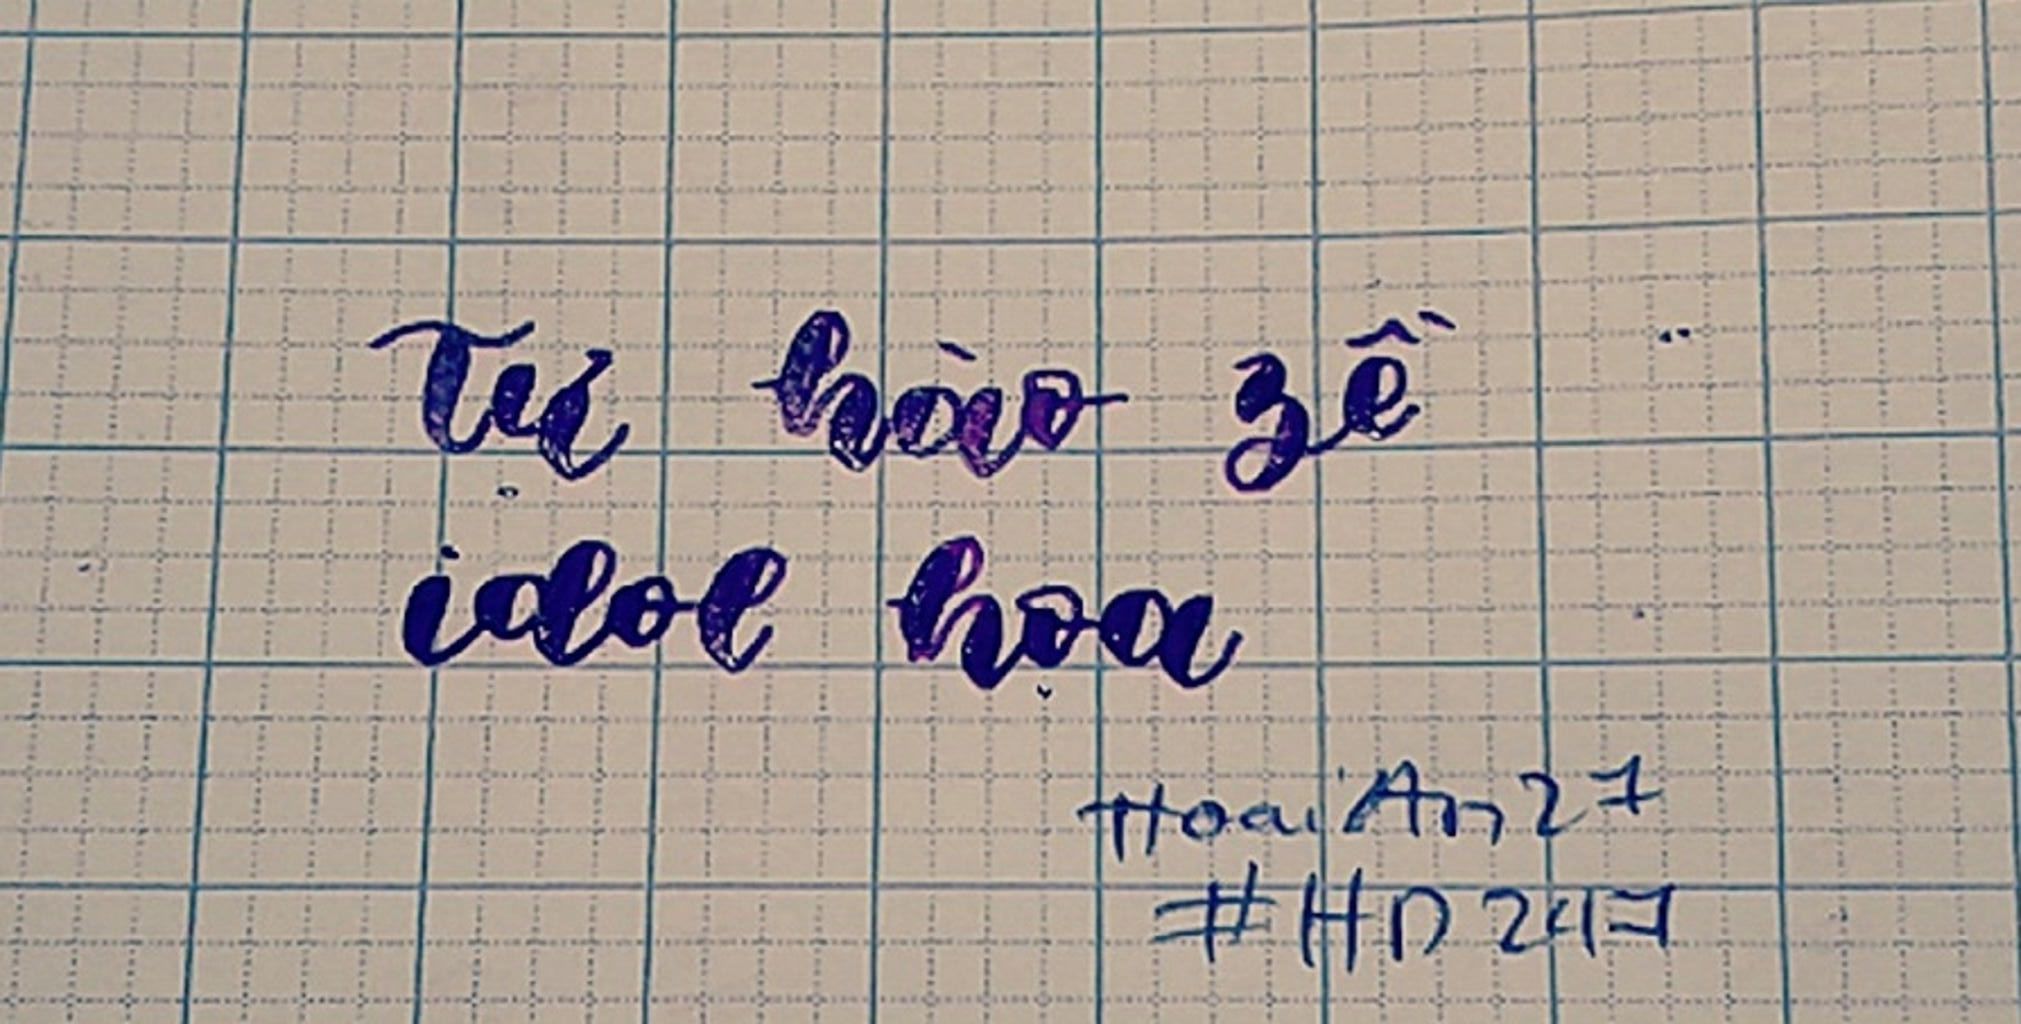 Tự hào zề
idol họa
HoaiAn27
#HD247